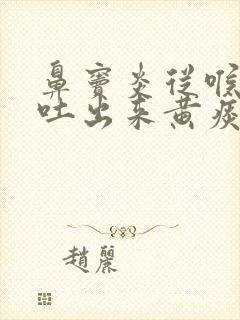 鼻窦炎从喉
吐出来黄痰
赵丽